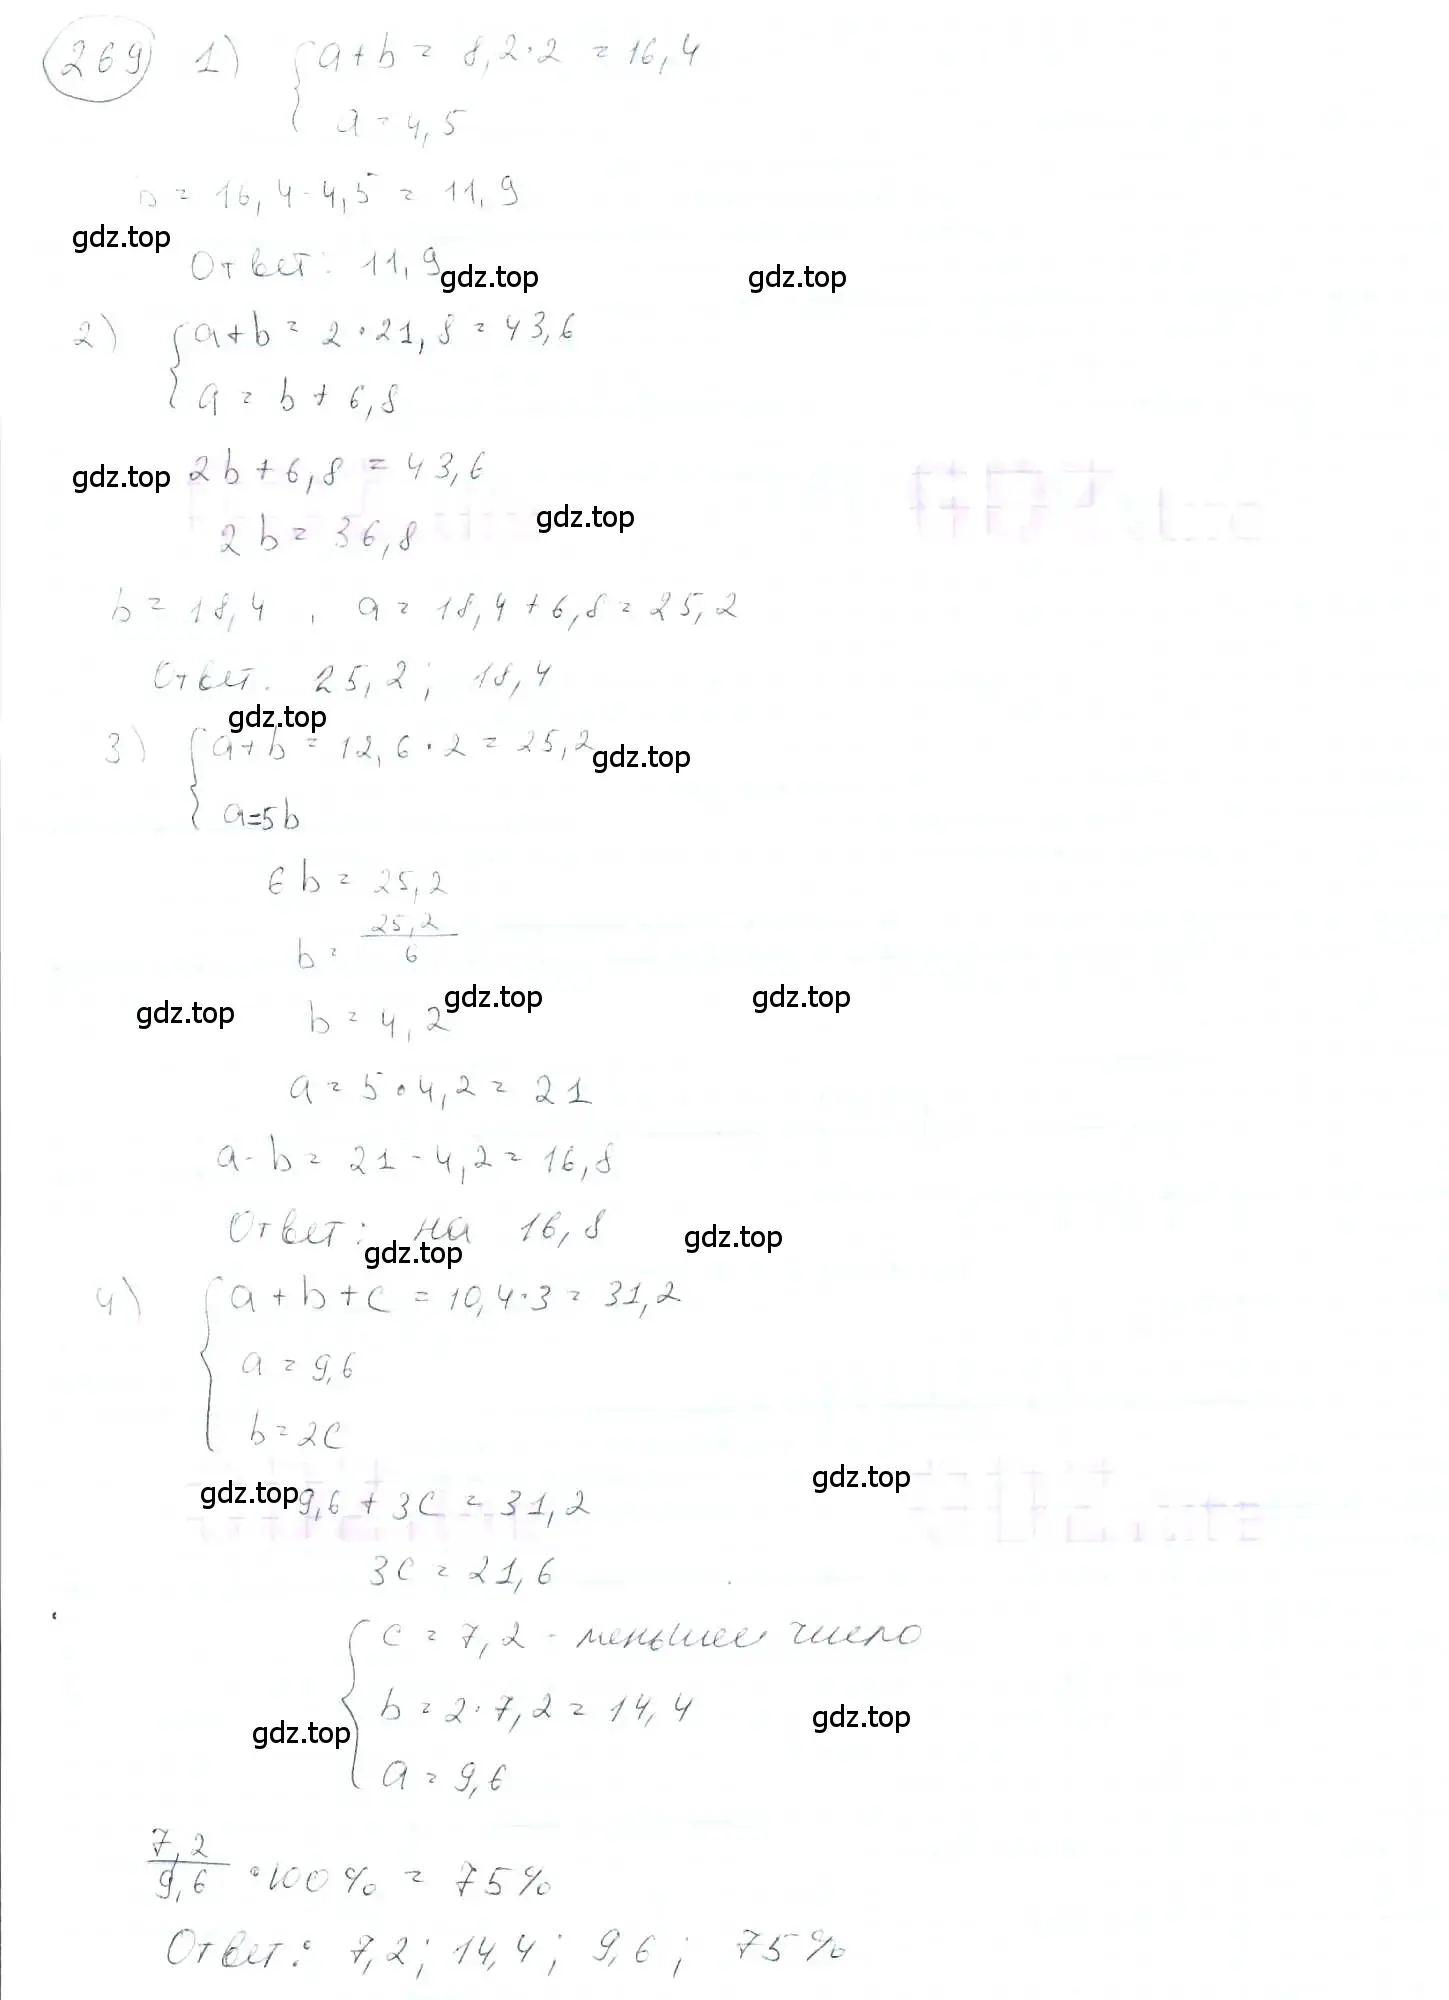 269 1) { a+b = 8,2·2 = 16,4
a = 4,5
b = 16,4 - 4,5 = 11,9
gdz.top
Ответ: 11,9
gdz.top gdz.top
2) { a+b = 2·21,8 = 43,6
a = b + 6,8
gdz.top 2b + 6,8 = 43,6
gdz.top
2b = 36,8
b = 18,4, a = 18,4 + 6,8 = 25,2
Ответ. 25,2; 18,4
gdz.top
3) { a+b = 12,6·2 = 25,2
gdz.top
a=5b
6b = 25,2
b = 25,2/6
gdz.top gdz.top gdz.top
b = 4,2
a = 5·4,2 = 21
a-b = 21 - 4,2 = 16,8
Ответ: на 16,8
gdz.top gdz.top
4) { a+b+c = 10,4·3 = 31,2
a = 9,6
b = 2c
gdz.top gdz.top
9,6 + 3c = 31,2
3c = 21,6
{ c = 7,2 - меньшее число
b = 2·7,2 = 14,4
gdz.top gdz.top
a = 9,6
7,2/9,6 · 100% = 75%
Ответ: 7,2; 14,4; 9,6; 75%